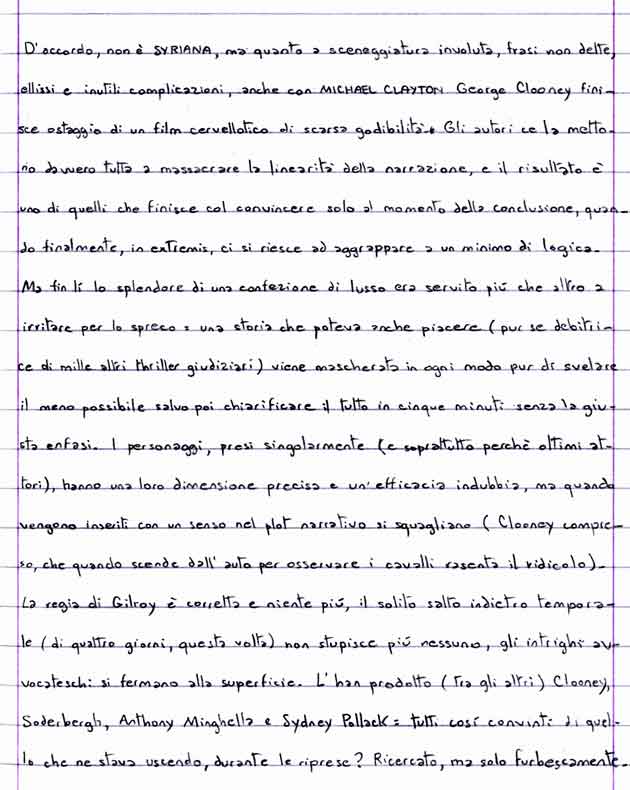 D'accordo, non è SYRIANA, ma quanto a sceneggiatura involuta, frasi non dette,
ellissi e inutili complicazioni, anche con MICHAEL CLAYTON George Clooney fini-
sce ostaggio di un film cervellotico di scarsa godibilità. Gli autori ce la metto-
no davvero tutta a massacrare la linearità della narrazione, e il risultato è
uno di quelli che finisce col convincere solo al momento della conclusione, quan-
do finalmente, in extremis, ci si riesce ad aggrappare a un minimo di logica.
Ma fin lí lo splendore di una confezione di lusso era servito piú che altro a
irritare per lo spreco: una storia che poteva anche piacere (pur se debitri-
ce di mille altri thriller giudiziari) viene mascherata in ogni modo pur di svelare
il meno possibile salvo poi chiarificare il tutto in cinque minuti senza la giu-
sta enfasi. I personaggi, presi singolarmente (e soprattutto perchè ottimi at-
tori), hanno una loro dimensione precisa e un'efficacia indubbia, ma quando
vengono inseriti con un senso nel plot narrativo si squagliano (Clooney compre-
so, che quando scende dall'auto per osservare i cavalli rasenta il ridicolo).
La regia di Gilroy è corretta e niente piú, il solito salto indietro tempora-
le (di quattro giorni, questa volta) non stupisce piú nessuno, gli intrighi av-
vocateschi si fermano alla superficie. L'han prodotto (tra gli altri) Clooney,
Soderbergh, Anthony Minghella e Sydney Pollack: tutti cosí convinti di quel-
lo che ne stava uscendo, durante le riprese? Ricercato, ma solo furbescamente.